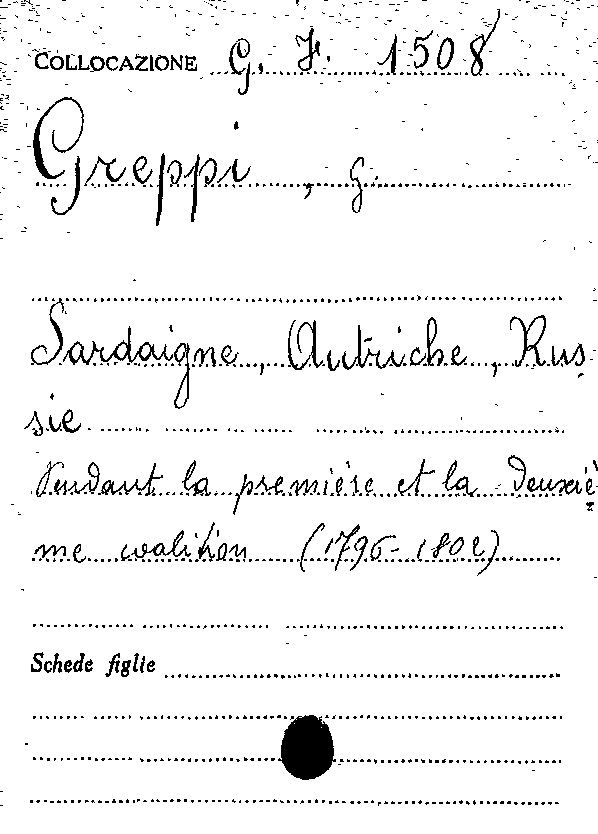 COLLOCAZIONE G. F. 1508
Greppi, G.
Sardaigne, Autriche, Rus-
sie
Pendant la première et la deuxiè-
me coalition (1796-1802)
Schede figlie